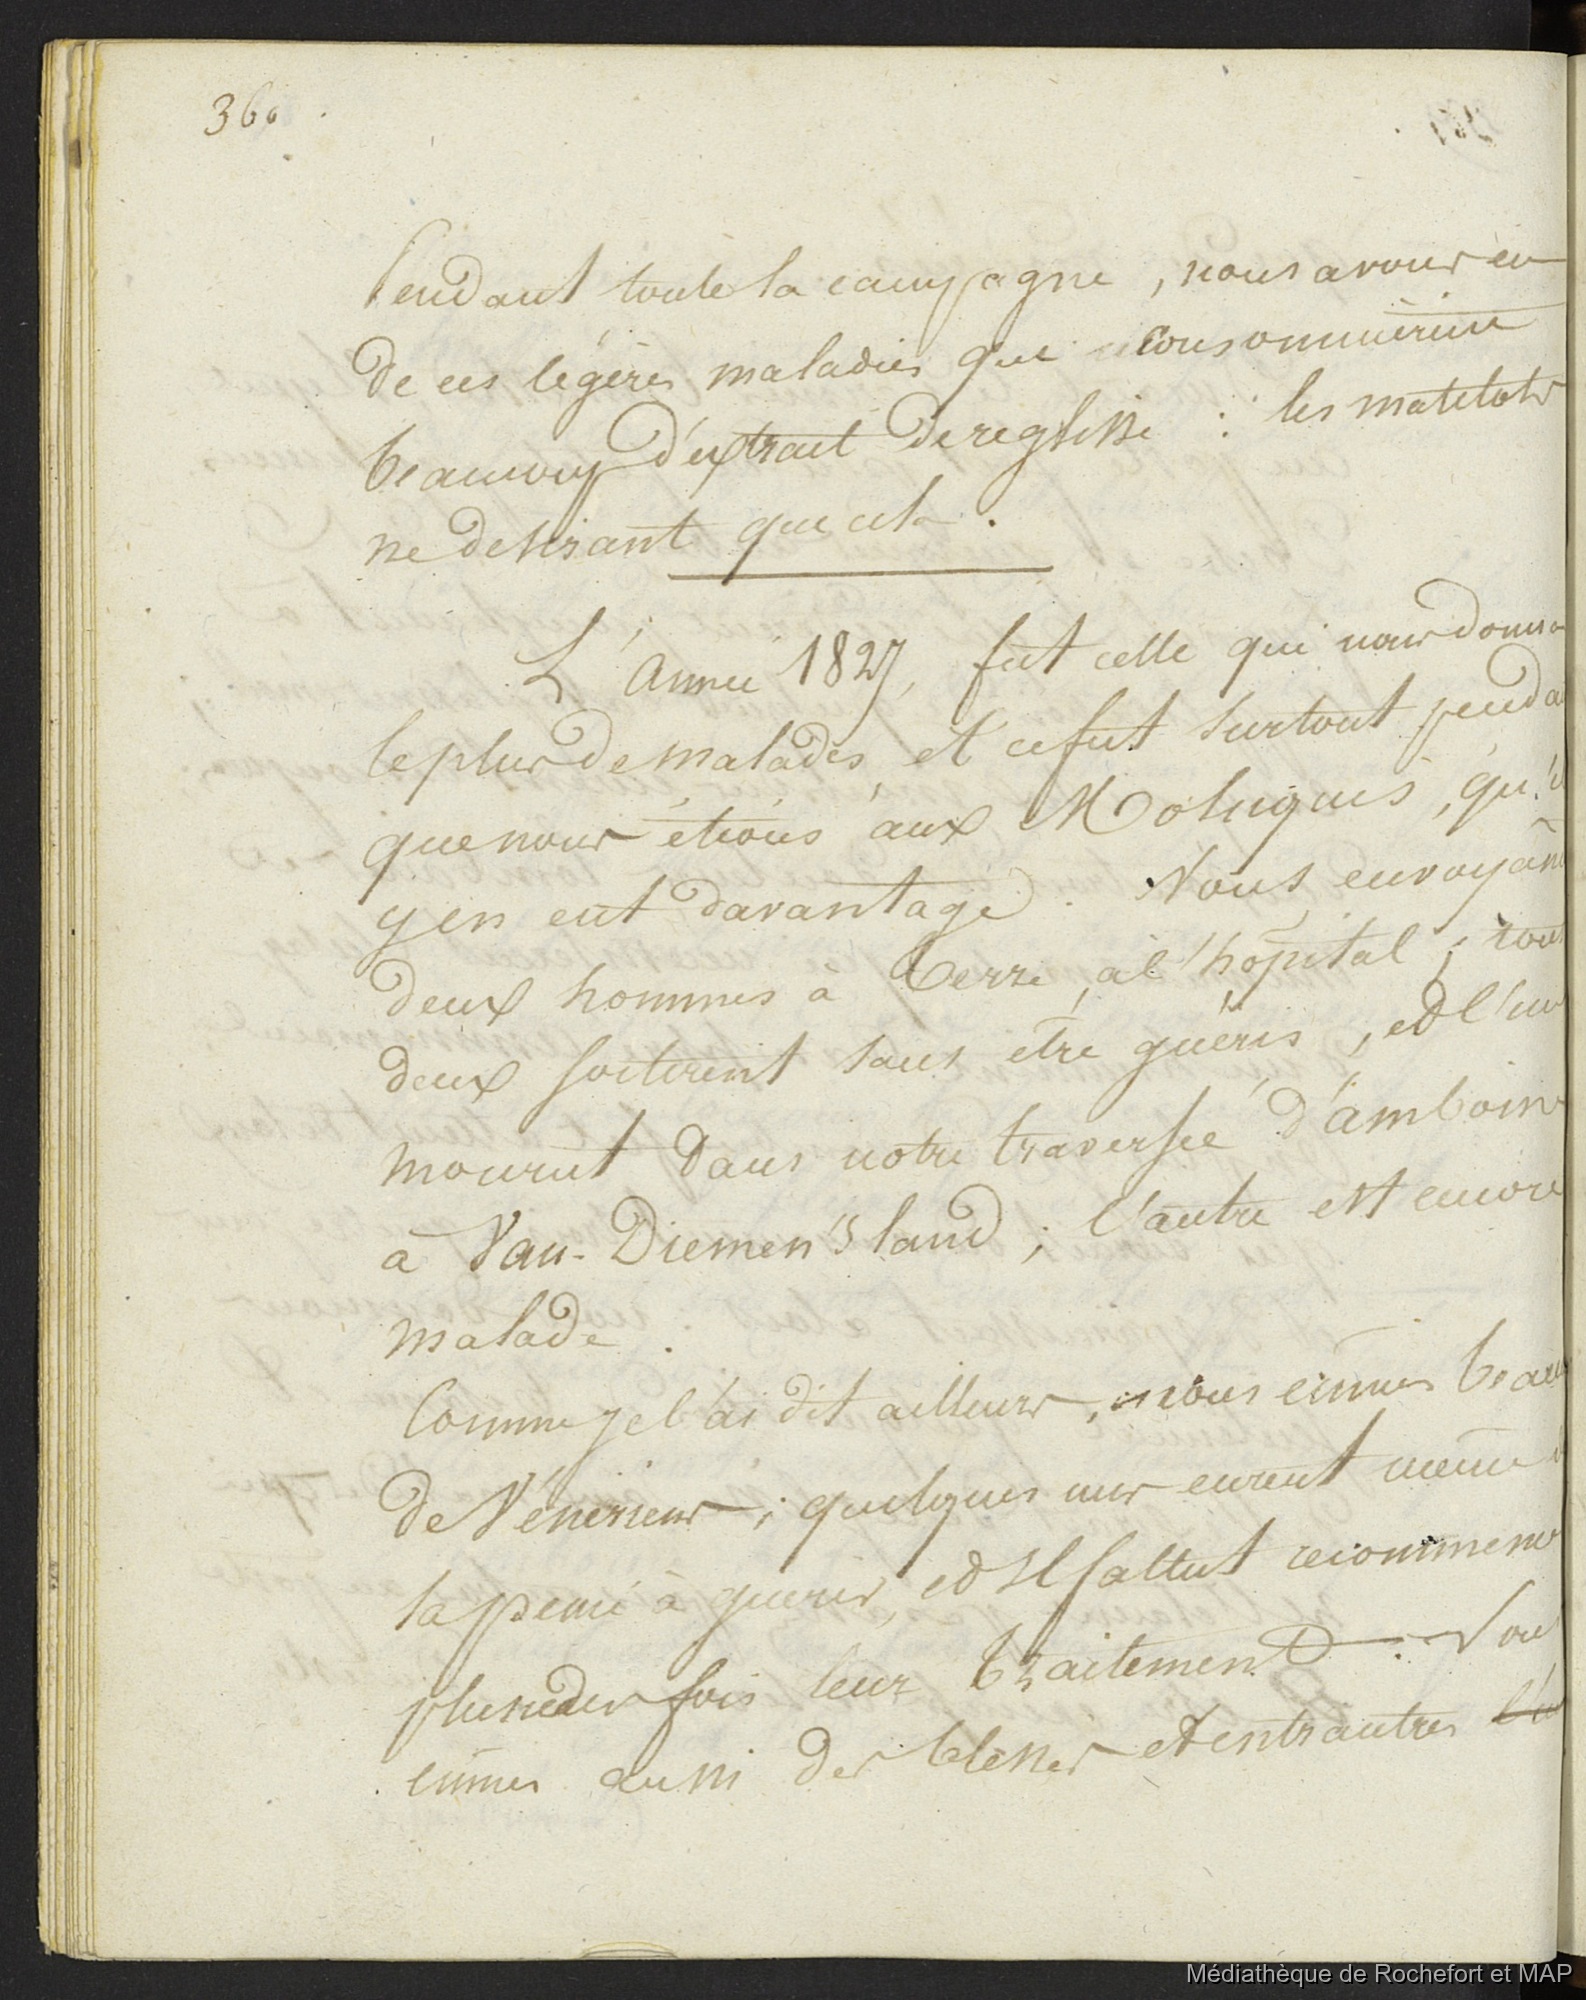 360
Pendant toute la campagne, nous avons eu
de ces légères maladies que consommèrent
beaucoup d'extrait de reglisse : les matelots
ne desirant que cela.
L'année 1827, fut celle qui nous donna
le plus de malades, et ce fut surtout penda
que nous étions aux Moluques, qu'il
y en eut davantage. Nous envoyâm
deux hommes à terre, à l'hôpital ; tous
deux sortirent sans etre guéris, et l'un
mourut dans notre traversée d'amboine
à Van-Diemen's land ; l'autre est encore
malade.
Comme je l'ai dit ailleurs, nous eûmes beau
de Vénériens ; quelques uns eurent même d
la peine à guerir, et Il fallut recommenc
plusieurs fois leur traitement. Nous
eûmes aussi des blessés et entr'autres
Médiathèque de Rochefort et MAP